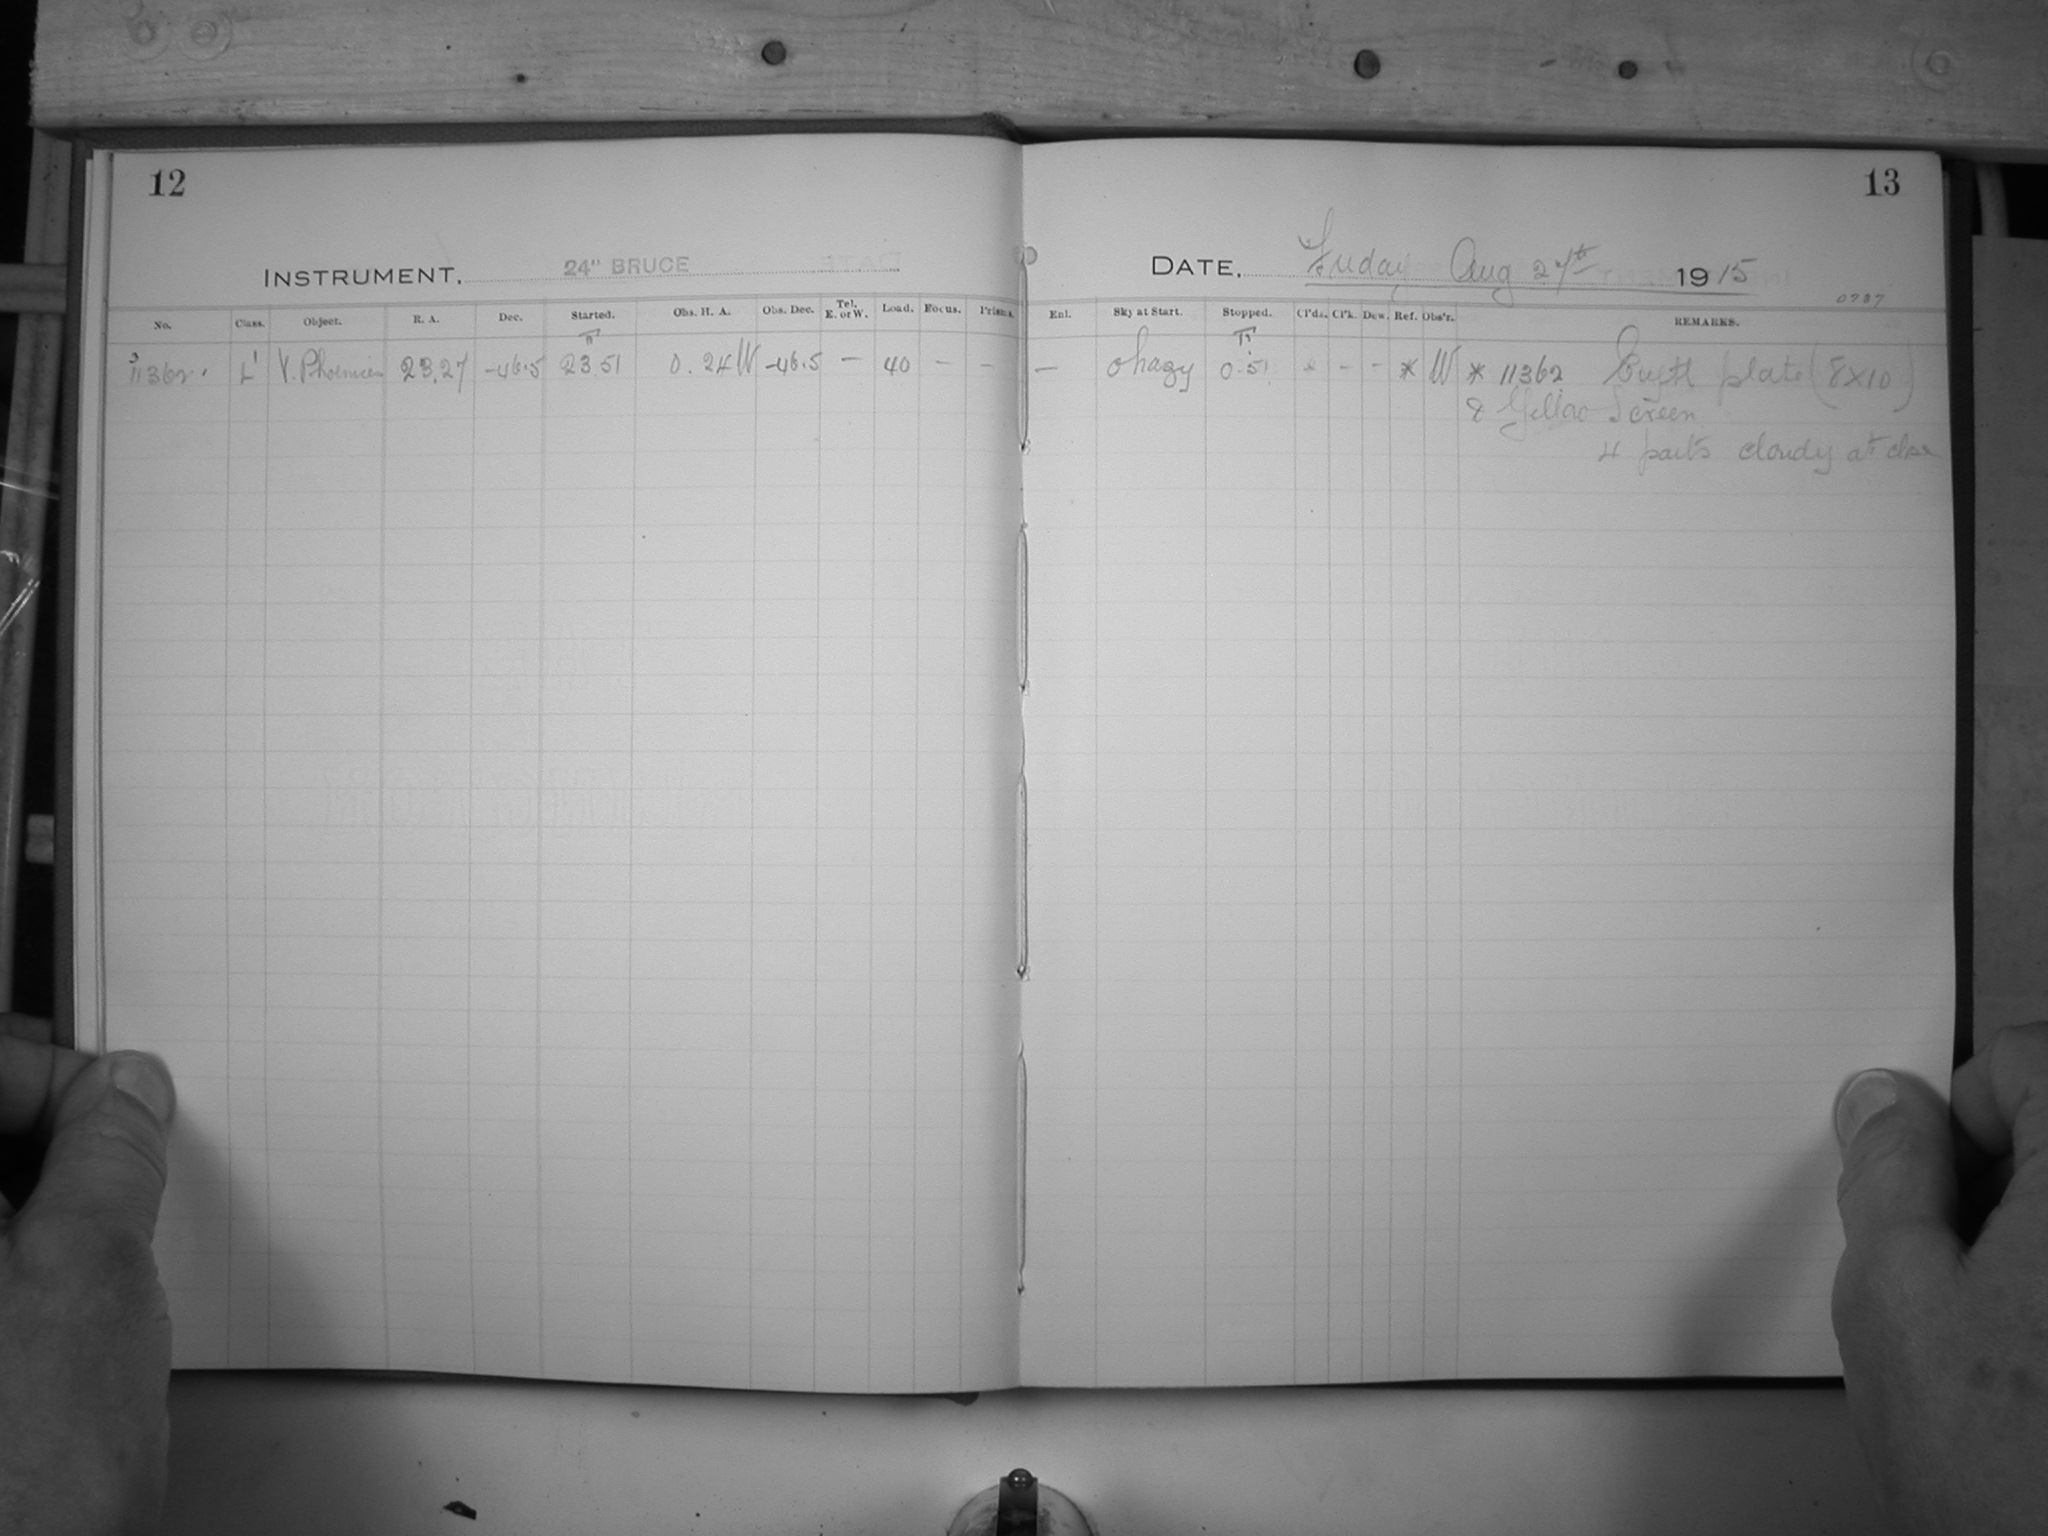 12
INSTRUMENT, 24" BRUCE
No. Class. Object. R. A. Dec. Started. Obs. H. A. Obs. Dec. Tel. E. or W. Load. Focus. Prisms.
3
11362 L' V. Phoenicis 23.27 -46.5 23 51 0.24 W -46.5 — 40 – –
13
DATE, Friday Aug 27th 1915
0787
Enl. Sky at Start. Stopped. Cl'ds. Cl'k. Dew. Ref. Obs'r. REMARKS.
— 0 hazy 0.51 * - - * W * 11362 plate (8X10)
& Yellow Screen
4 parts cloudy at close